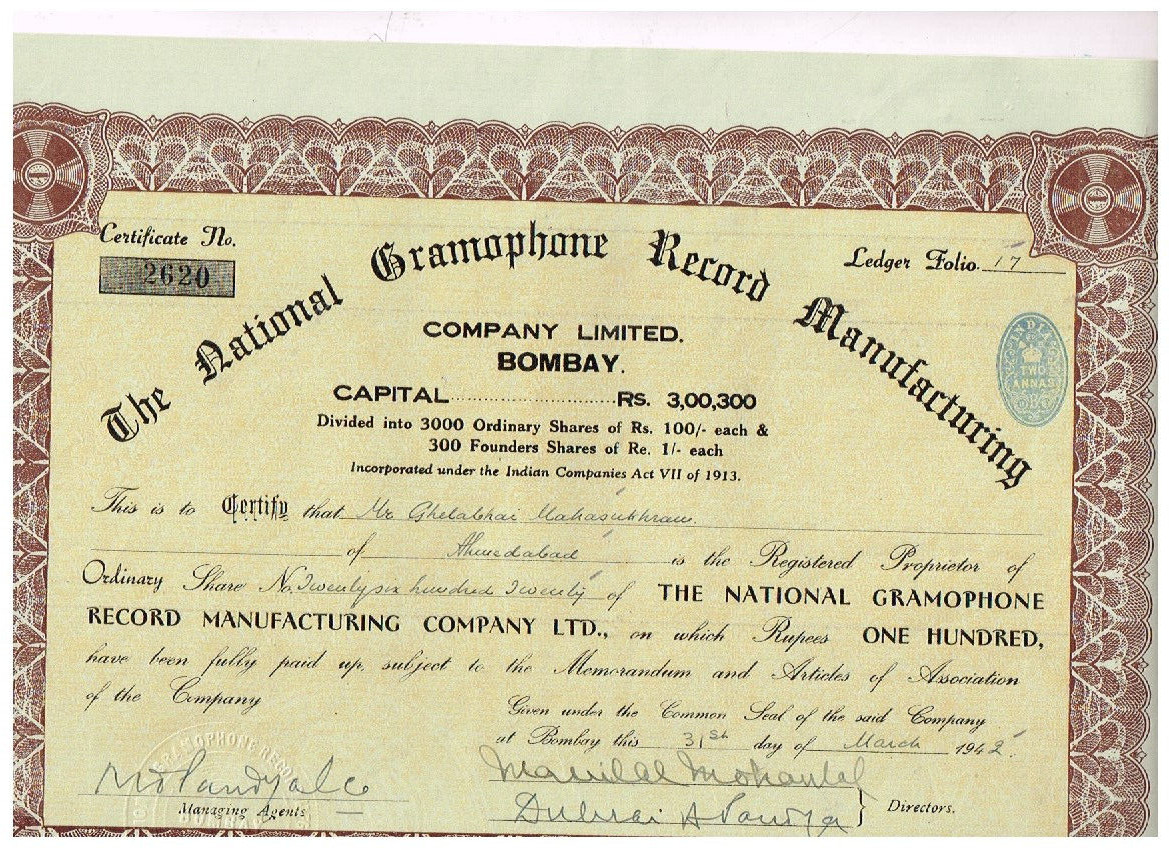 Certificate No.
2620
Ledger Folio. 17
The National Gramophone Record Manufacturing
COMPANY LIMITED.
BOMBAY.
CAPITAL..............................RS. 3,00,300
Divided into 3000 Ordinary Shares of Rs. 100/- each &
300 Founders Shares of Re. 1/- each
Incorporated under the Indian Companies Act VII of 1913.
INDIA
TWO
ANNAS
This is to Certify that Mr Ghelabhai Mahasukhram.
of Ahmedabad is the Registered Proprietor of
Ordinary Share No. Twentysix hundred Twenty of THE NATIONAL GRAMOPHONE
RECORD MANUFACTURING COMPANY LTD., on which Rupees ONE HUNDRED,
have been fully paid up, subject to the Memorandum and Articles of Association
of the Company
Given under the Common Seal of the said Company
at Bombay this 31st day of March 1942.
Manilal Mohanlal
Managing Agents
Directors.